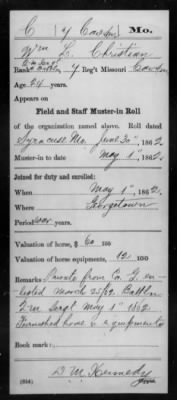 C 7 Cavalry Mo.
Wm L. Christian
Rank, 7 Reg't Missouri Cavalry
Age 24 years.
Appears on
Field and Staff Muster-in Roll
of the organization named above. Roll dated
Syracuse Mo. June 30", 1862.
Muster-in to date May 1", 1862.
Joined for duty and enrolled:
When May 1", 1862.
Where Georgetown
Period war years.
Valuation of horse, $ 60 100
Valuation of horse equipments, 12 100
Remarks Private from Co. G. en-
listed March 25/62. Battln
Q m Sergt May 1" 1862.
Furnished horse & equipments
Book mark:
D M Kennedy
(344) Copyist.